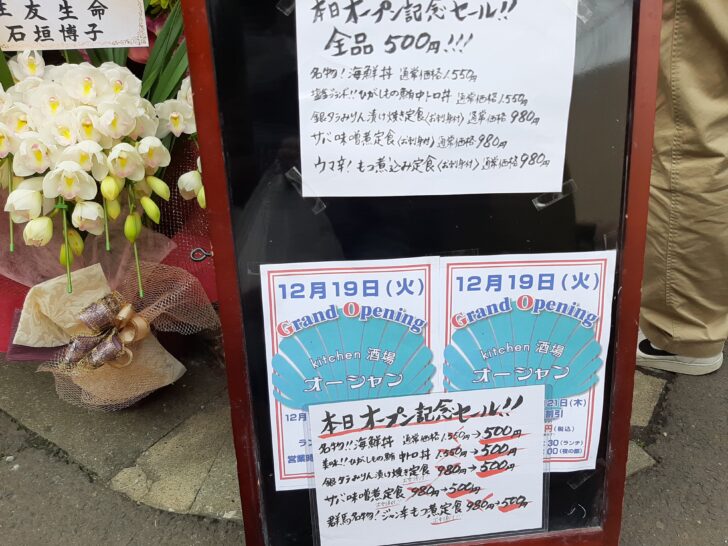 住友生命
石垣博子
本日オープン記念セール!!
全品 500円!!!
名物!海鮮丼 通常価格1.550円
ひがしもの鮪中トロ丼 通常価格1.550円
銀ダラみりん漬け焼き定食(お刺身付) 通常価格980円
サバ味噌煮定食(お刺身付)通常価格980円
ウマ辛!もつ煮込み定食(お刺身付)通常価格980円
12月19日(火)
Grand Opening
kitchen 酒場
オーシャン
12月19日(火)
Grand Opening
kitchen 酒場
オーシャン
営業時
21日(木)
割引
円(税込)
:30(ランチ)
:00(夜の部)
本日オープン記念セール!!
名物!!海鮮丼 通常価格1.550円→500円
美味!!ひがしもの鮪中トロ丼 1.550円→500円
銀ダラみりん漬け焼き定食 980円→500円
サバ味噌煮定食 980円→500円
群馬名物!ジャン辛もつ煮定食 980円→500円